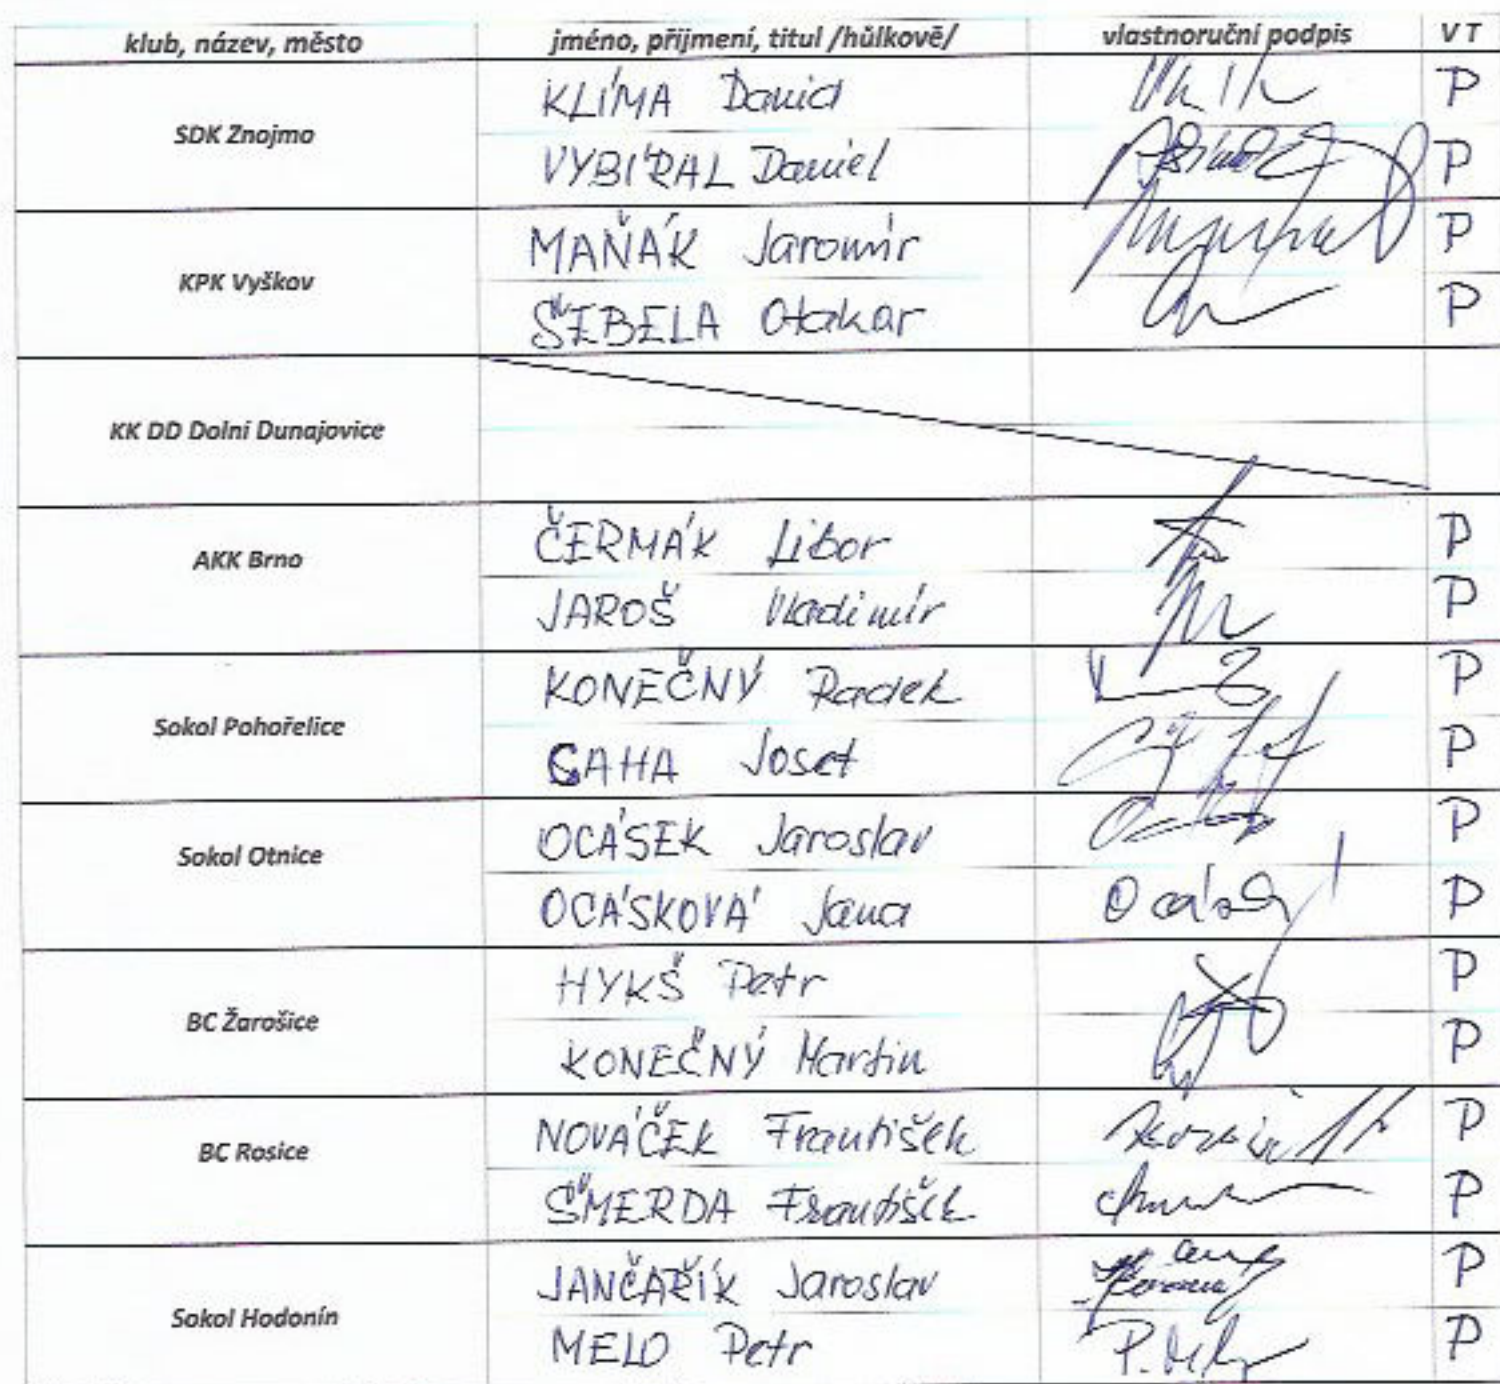 klub, název, město jméno, příjmení, titul /hůlkově/ vlastnoruční podpis V T
SDK Znojmo
KLÍMA David P
VYBÍRAL Daniel P
KPK Vyškov
MAŇÁK Jaromír P
ŠEBELA Otakar P
KK DD Dolní Dunajovice
AKK Brno
ČERMÁK Libor P
JAROŠ Vladimír P
Sokol Pohořelice
KONEČNÝ Radek P
SAHA Josef P
Sokol Otnice
OCÁSEK Jaroslav P
OCÁSKOVÁ Jana P
BC Žarošice
HYKŠ Petr P
KONEČNÝ Martin P
BC Rosice
NOVÁČEK František P
ŠMERDA František P
Sokol Hodonín
JANČAŘÍK Jaroslav P
MELO Petr P